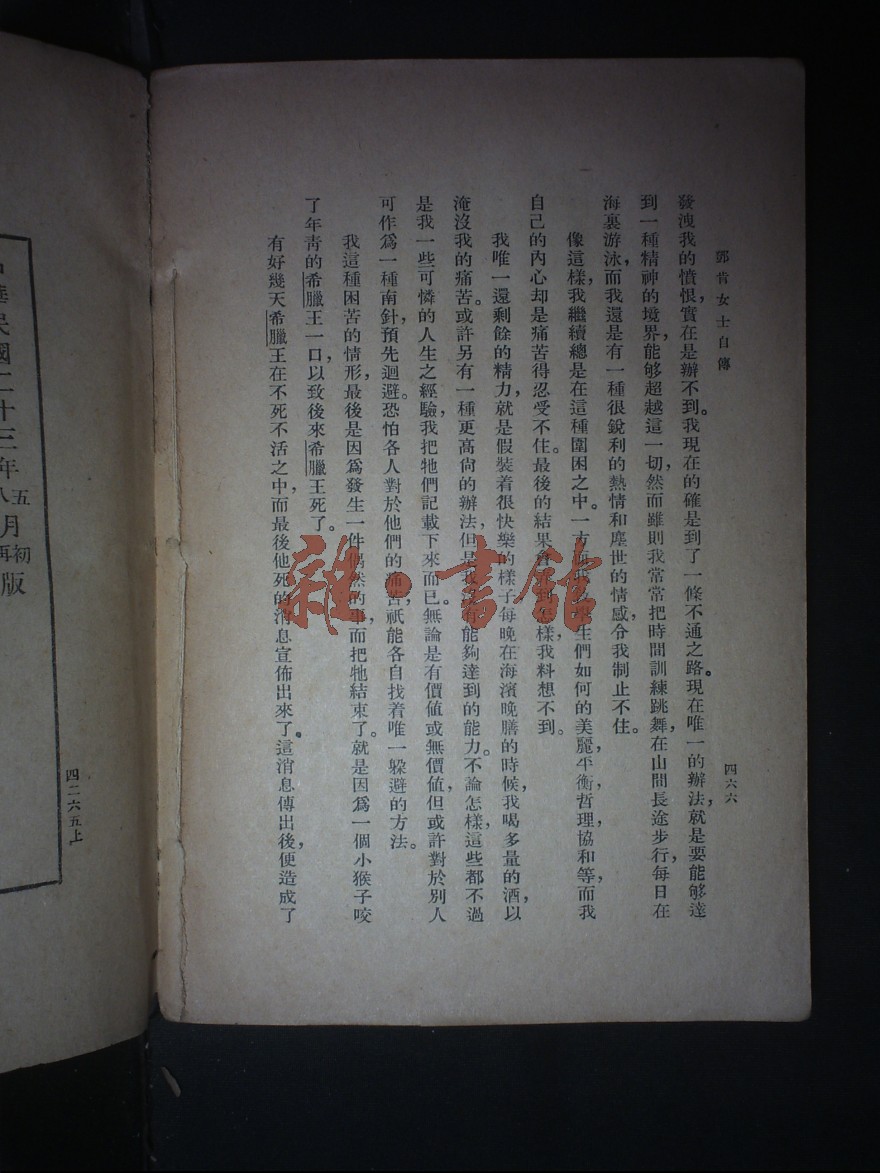 鄧肯女士自傳
四六六
發洩我的憤恨，實在是辦不到。我現在的確是到了一條不通之路。現在唯一的辦法，就是要能够達
到一種精神的境界，能够超越這一切，然而雖則我常常把時間訓練跳舞，在山間長途步行，每日在
海裏游泳，而我還是有一種很銳利的熱情和塵世的情感，令我制止不住。
像這樣，我繼續總是在這種圍困之中。一方面我學生們如何的美麗，平衡，哲理，協和等，而我
自己的內心却是痛苦得忍受不住。最後的結果會怎樣，我料想不到。
我唯一還剩餘的精力，就是假裝着很快樂的樣子，每晚在海濱晚膳的時候，我喝多量的酒，以
淹沒我的痛苦。或許另有一種更高尙的辦法，但是我沒有能夠達到的能力。不論怎樣，這些都不過
是我一些可憐的人生之經驗，我把牠們記載下來而已。無論是有價値或無價値，但或許對於別人
可作爲一種南針，預先迴避。恐怕各人對於他們的痛苦，祇能各自找着唯一躲避的方法。
我這種困苦的情形，最後是因爲發生一件偶然的事，而把牠結束了。就是因爲一個小猴子咬
了年靑的希臘王一口，以致後來希臘王死了。
有好幾天希臘王在不死不活之中，而最後他死的消息宣佈出來了。這消息傳出後，便造成了
雜·書館
華民國二十三年五月初版
八 再
四二六五上